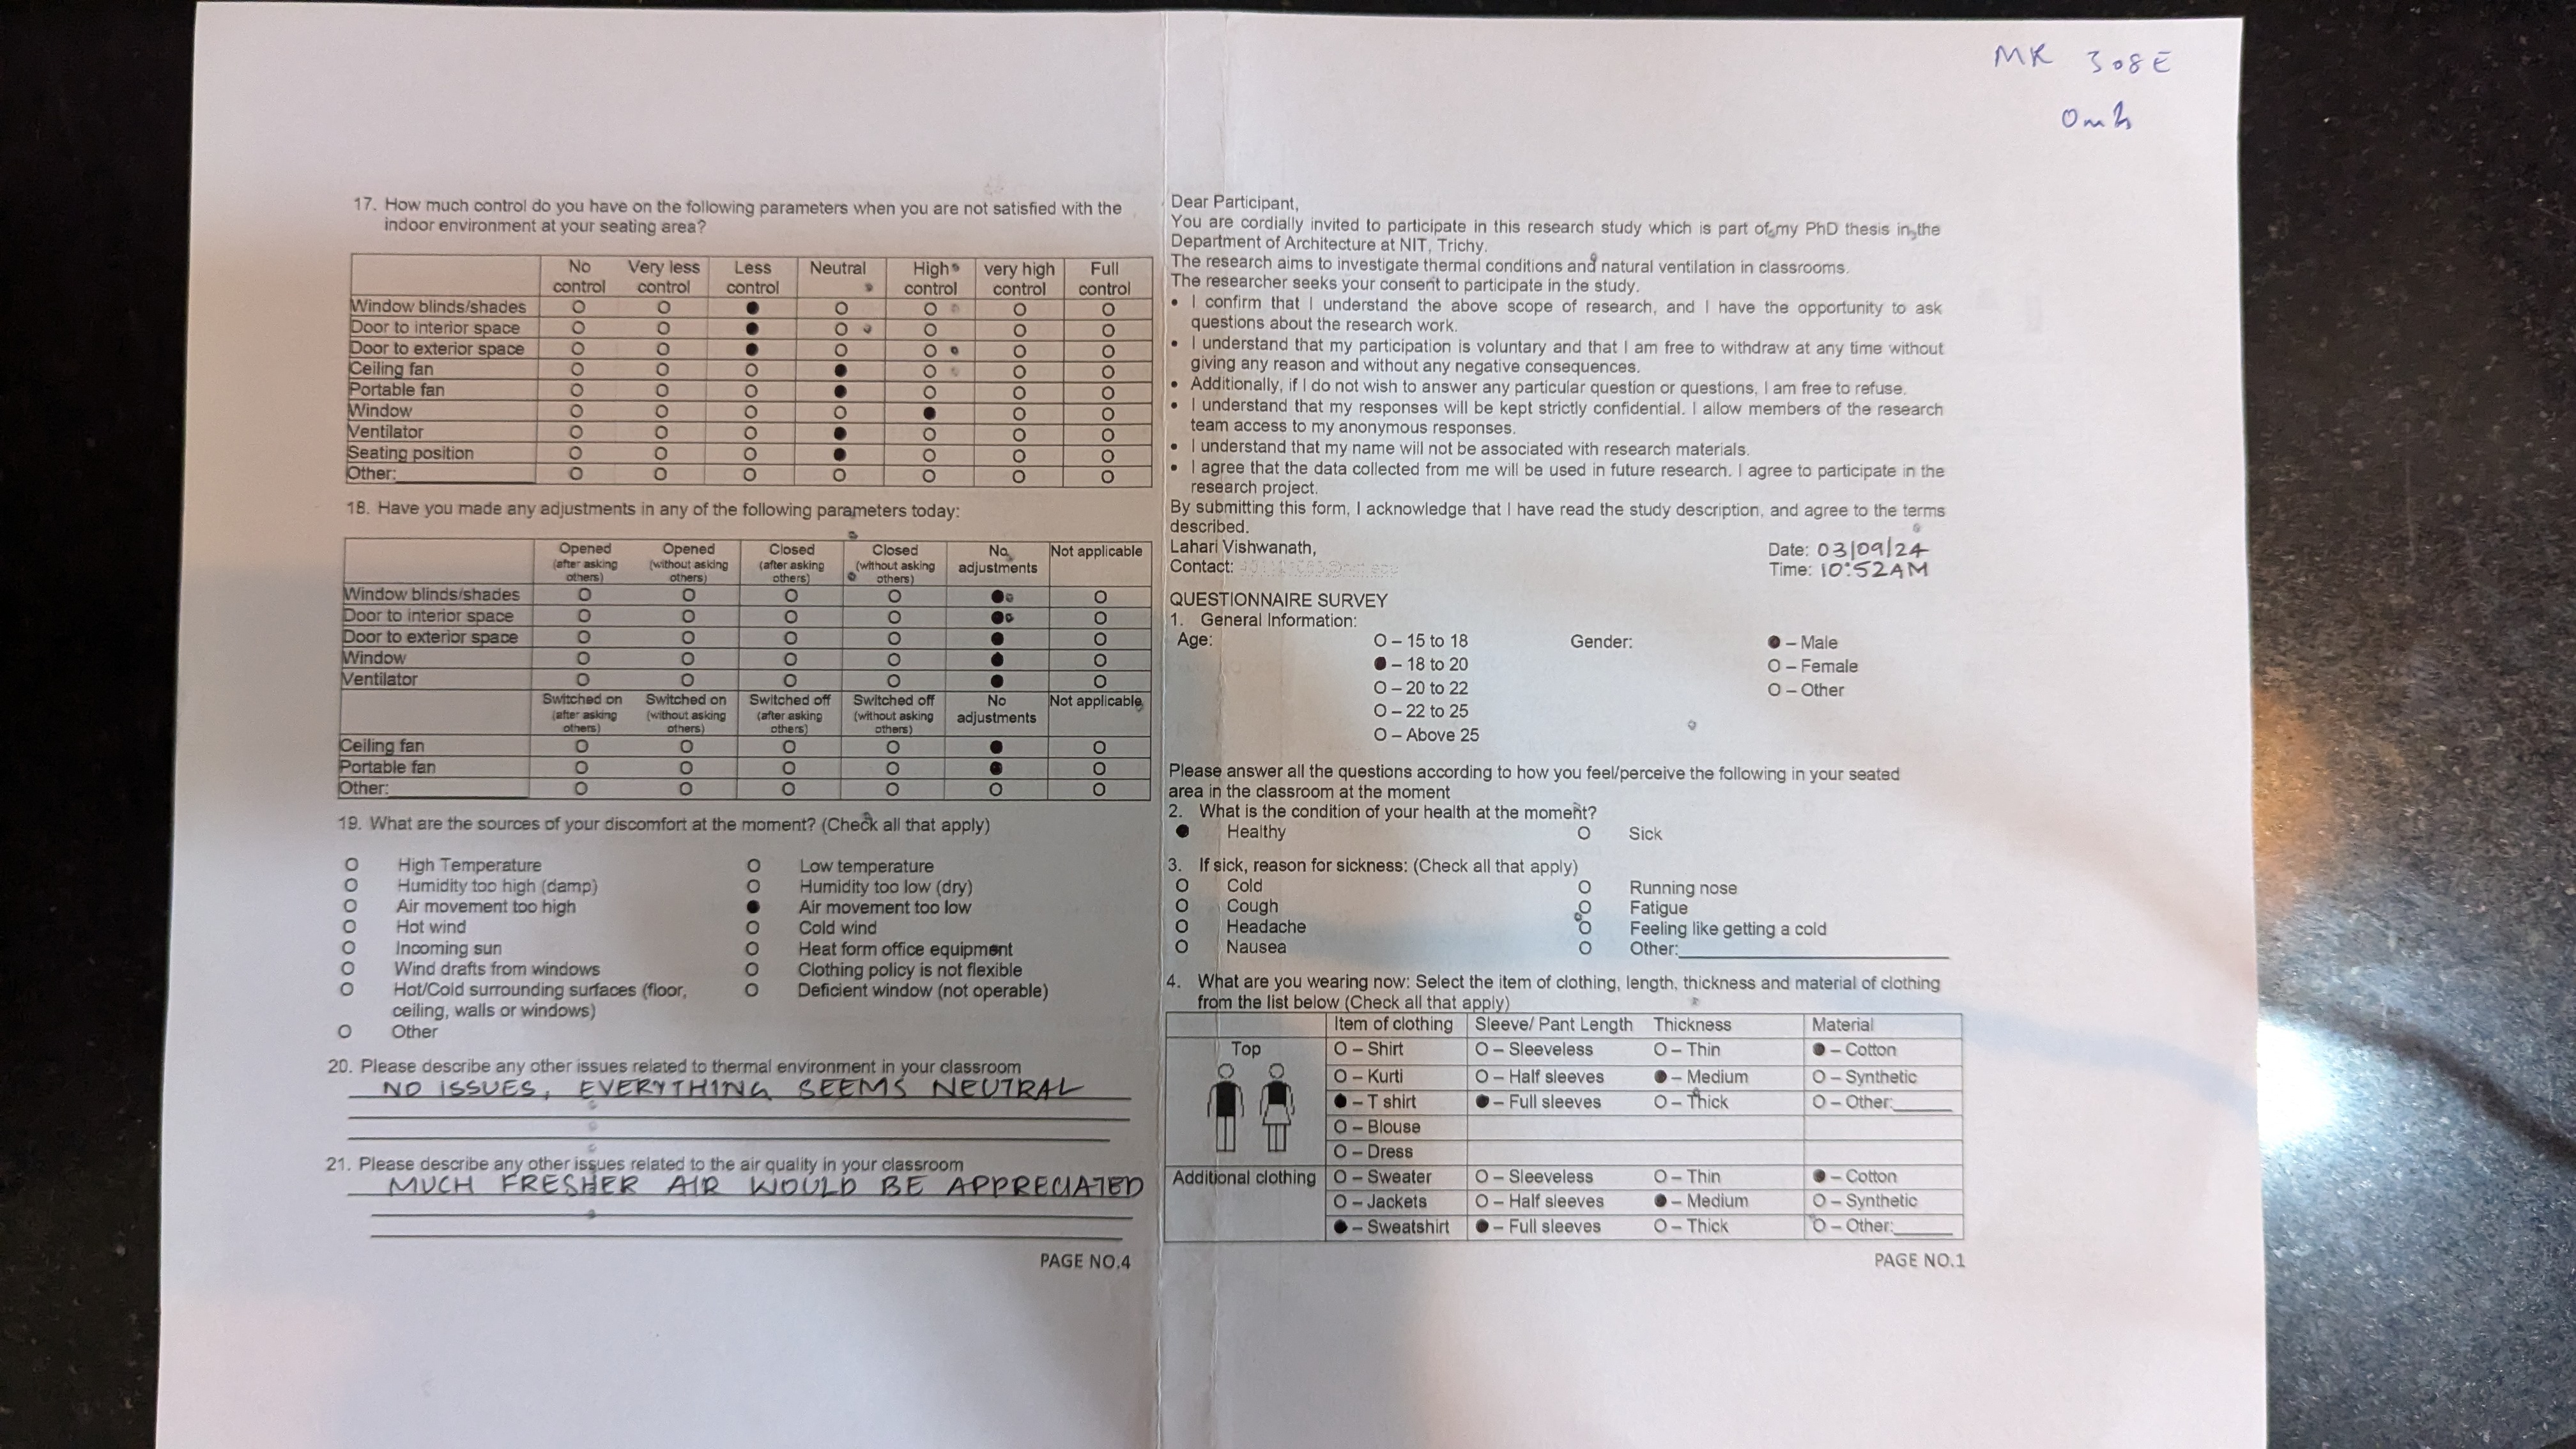 MR 308E
17. How much control do you have on the following parameters when you are not satisfied with the
indoor environment at your seating area?
No control Very less control Less control Neutral High control very high control Full control
Window blinds/shades O O ● O O O O
Door to interior space O O ● O O O O
Door to exterior space O O ● O O O O
Ceiling fan O O O ● O O O
Portable fan O O O ● O O O
Window O O O O ● O O
Ventilator O O O ● O O O
Seating position O O O ● O O O
Other:__________ O O O O O O O
18. Have you made any adjustments in any of the following parameters today:
Opened (after asking others) Opened (without asking others) Closed (after asking others) Closed (without asking others) No adjustments Not applicable
Window blinds/shades O O O O ● O
Door to interior space O O O O ● O
Door to exterior space O O O O ● O
Window O O O O ● O
Ventilator O O O O ● O
Switched on (after asking others) Switched on (without asking others) Switched off (after asking others) Switched off (without asking others) No adjustments Not applicable
Ceiling fan O O O O ● O
Portable fan O O O O ● O
Other:__________ O O O O O O
19. What are the sources of your discomfort at the moment? (Check all that apply)
O High Temperature O Low temperature
O Humidity too high (damp) O Humidity too low (dry)
O Air movement too high ● Air movement too low
O Hot wind O Cold wind
O Incoming sun O Heat form office equipment
O Wind drafts from windows O Clothing policy is not flexible
O Hot/Cold surrounding surfaces (floor, O Deficient window (not operable)
ceiling, walls or windows)
O Other
20. Please describe any other issues related to thermal environment in your classroom
NO ISSUES, EVERYTHING SEEMS NEUTRAL
21. Please describe any other issues related to the air quality in your classroom
MUCH FRESHER AIR WOULD BE APPRECIATED
PAGE NO.4
Dear Participant,
You are cordially invited to participate in this research study which is part of my PhD thesis in the
Department of Architecture at NIT, Trichy.
The research aims to investigate thermal conditions and natural ventilation in classrooms.
The researcher seeks your consent to participate in the study.
• I confirm that I understand the above scope of research, and I have the opportunity to ask
questions about the research work.
• I understand that my participation is voluntary and that I am free to withdraw at any time without
giving any reason and without any negative consequences.
• Additionally, if I do not wish to answer any particular question or questions, I am free to refuse.
• I understand that my responses will be kept strictly confidential. I allow members of the research
team access to my anonymous responses.
• I understand that my name will not be associated with research materials.
• I agree that the data collected from me will be used in future research. I agree to participate in the
research project.
By submitting this form, I acknowledge that I have read the study description, and agree to the terms
described.
Lahari Vishwanath, Date: 03/09/24
Contact: Time: 10:52AM
QUESTIONNAIRE SURVEY
1. General Information:
Age: O – 15 to 18 Gender: ● – Male
● – 18 to 20 O – Female
O – 20 to 22 O – Other
O – 22 to 25
O – Above 25
Please answer all the questions according to how you feel/perceive the following in your seated
area in the classroom at the moment
2. What is the condition of your health at the moment?
● Healthy O Sick
3. If sick, reason for sickness: (Check all that apply)
O Cold O Running nose
O Cough O Fatigue
O Headache O Feeling like getting a cold
O Nausea O Other:__________
4. What are you wearing now: Select the item of clothing, length, thickness and material of clothing
from the list below (Check all that apply)
Item of clothing Sleeve/ Pant Length Thickness Material
Top O – Shirt O – Sleeveless O – Thin ● – Cotton
O – Kurti O – Half sleeves ● – Medium O – Synthetic
● – T shirt ● – Full sleeves O – Thick O – Other:______
O – Blouse
O – Dress
Additional clothing O – Sweater O – Sleeveless O – Thin ● – Cotton
O – Jackets O – Half sleeves ● – Medium O – Synthetic
● – Sweatshirt ● – Full sleeves O – Thick O – Other:______
PAGE NO.1